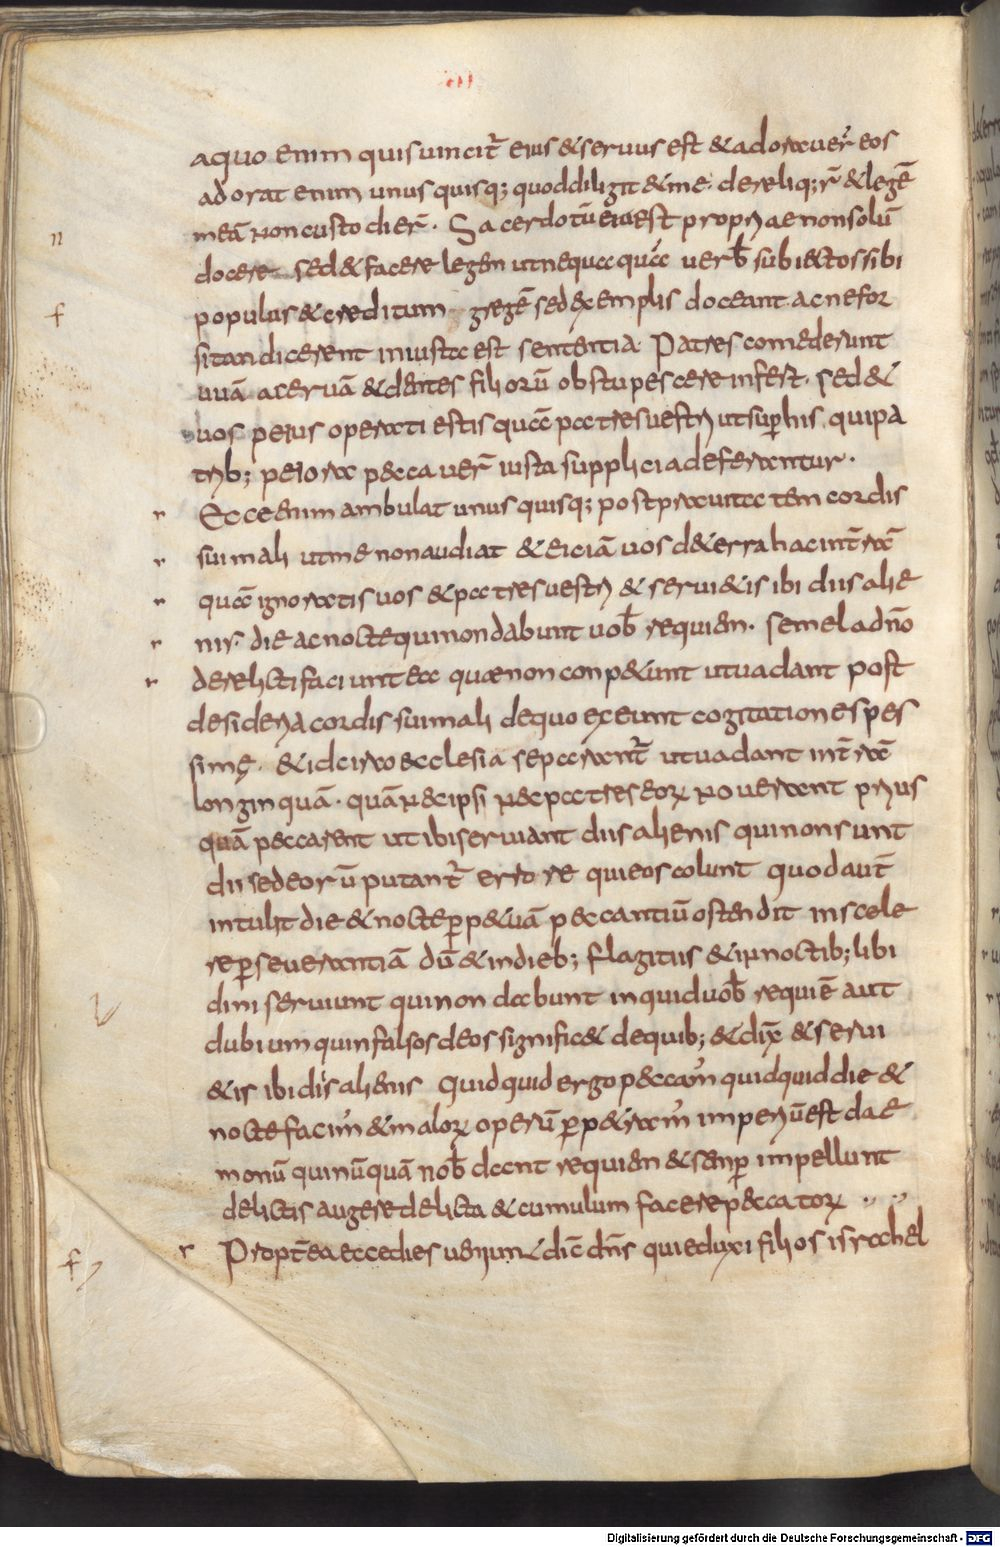 III
a quo enim quis vincit᷑ eius & servus est & adoraver̄ eos
adorat enim unusquisq; quod diligit & me. dereliq;r̄ & legē
meā non custodier̄. Sacerdotū ei est proprii ae non solū
docere sed & facere legem ut nequaquā verb̄ subiectos sibi
populus & creditum gregē sed exemplis doceant. ac ne for
sitan dicerent iniusta est sententia Patres comederunt
uuā acervā & dentes filiorū obstupescere infest. sed &
uos peius operati estis quā patres uestri ut sup̄ his. qui pa
trib; peiora peccaver̄ iusta supplicia deferantur.
Ecce enim ambulat unusquisq; post pravitatem cordis
sui mali ut me non audiat & eiciā vos de terra hac in t̄rā
quā ignoratis vos & patres vestri & servietis ibi diis alie
nis. die ac nocte qui non dabunt vob̄ requiem. semel a dn̄o
derelicti faciunt ea quæ non conpetunt ut vadant post
desideria cordis sui mali de quo exeunt cogitationes pes
simę. & idcirco ecclesia separant᷑ ut vadant in t̄rā
longinquā. quā nec ipsi nec patres eoꝝ noverant prius
quā peccarent ut ibi serviant diis alienis qui non sunt
dii sed eorū putant᷑ errore qui eos colunt quod aut̄
intulit die & nocte ꝑpetuā peccantiū ostendit in scele
re ꝑseverantiā dū & in dieb; flagitiis & in noctib; libi
dini serviunt qui non dabunt inquid vob̄ requiē aut
dubium quin falsos deos significet de quib; & dix̄ & servi
etis ibi dis alienis Quidquid ergo peccam᷒ quidquid die &
nocte facim᷒ & maloꝝ operū ꝑpetram᷒ imperiū est dae
monū qui nūquā nob̄ dant requiem & semꝑ impellunt
delictis augere delicta & cumulum facere peccatoꝝ
Propt̄ea ecce dies veniunt dic̄ dn̄s qui eduxi filios israhel
Digitalisierung gefördert durch die Deutsche Forschungsgemeinschaft - DFG